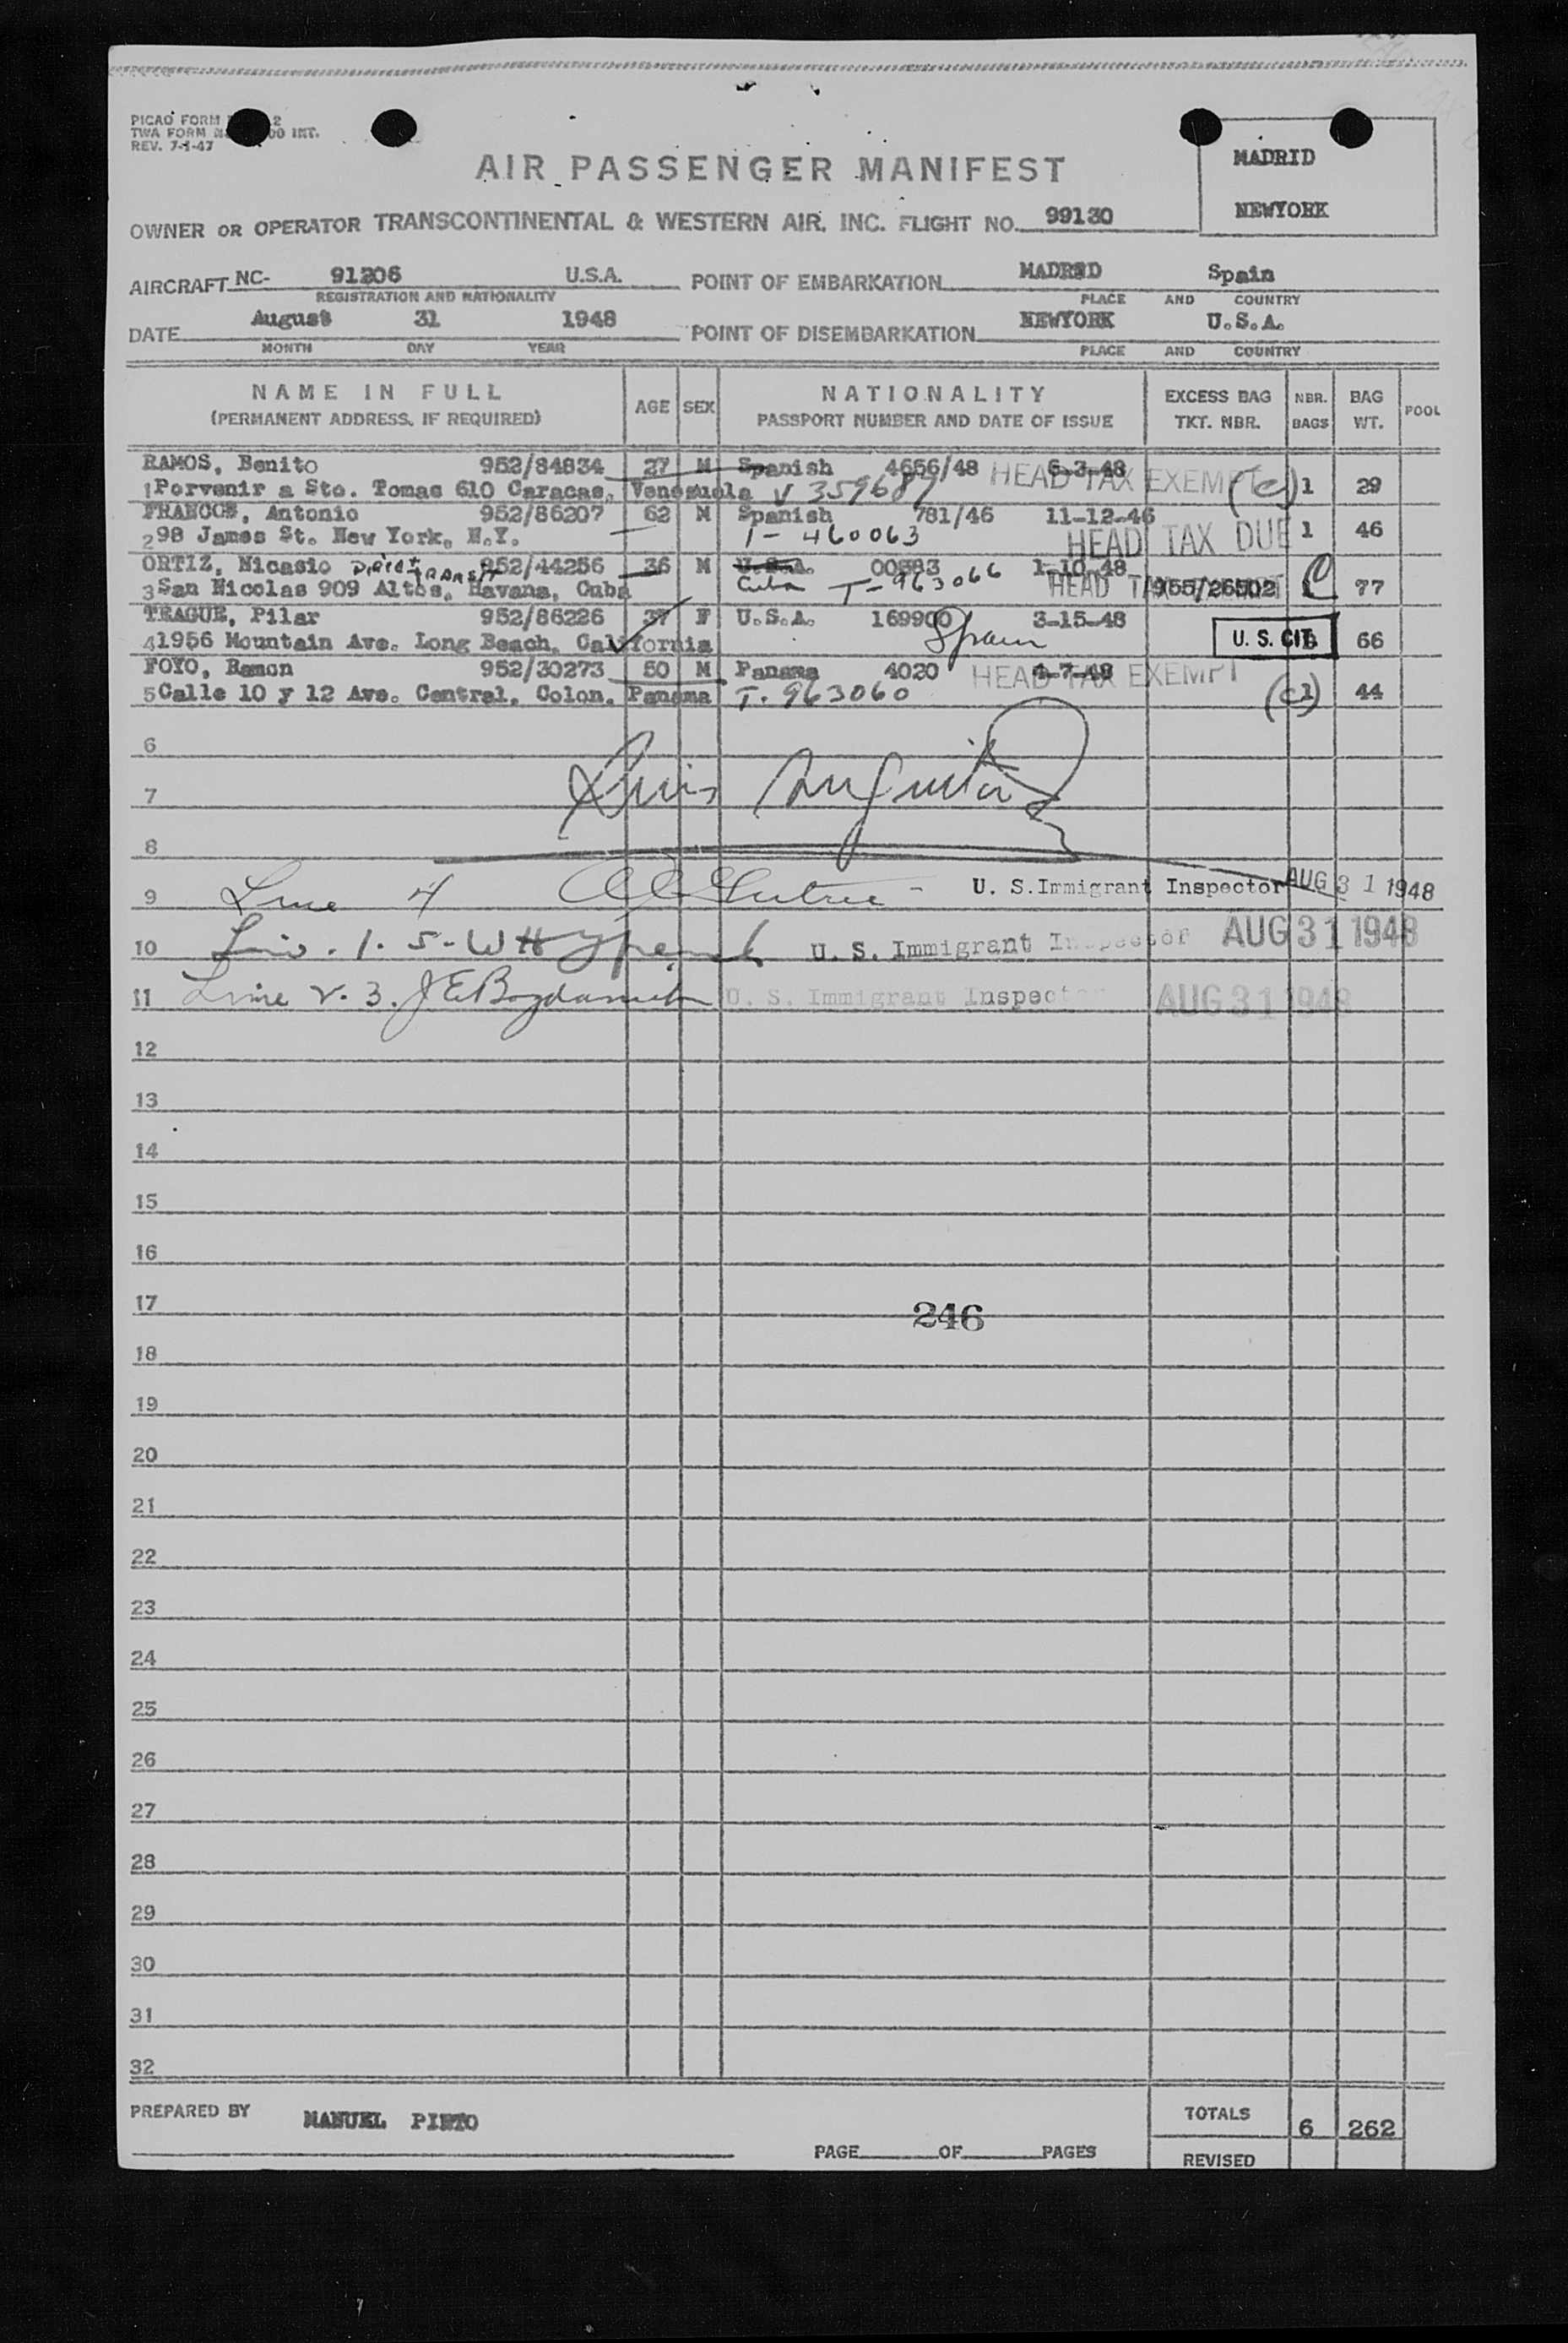 PICAO FORM 2
TWA FORM 00 INT.
REV. 7-1-47
MADRID
NEWYORK
AIR PASSENGER MANIFEST
OWNER OR OPERATOR TRANSCONTINENTAL & WESTERN AIR, INC. FLIGHT NO. 99130
AIRCRAFT NC- 91206 U.S.A. POINT OF EMBARKATION MADRID Spain
REGISTRATION AND NATIONALITY PLACE AND COUNTRY
DATE August 31 1948 POINT OF DISEMBARKATION NEWYORK U.S.A.
MONTH DAY YEAR PLACE AND COUNTRY
NAME IN FULL AGE SEX NATIONALITY EXCESS BAG NBR. BAG POOL
(PERMANENT ADDRESS, IF REQUIRED) PASSPORT NUMBER AND DATE OF ISSUE TKT. NBR. BAGS WT.
RAMOS, Benito 952/84834 27 M Spanish 4656/48 6-3-48 HEAD TAX EXEMPT (c)
1 Porvenir a Sto. Tomas 610 Caracas, Venesuela V 359689 1 29
952/86207 62 M Spanish 781/46 11-12-46
2 98 James St. New York, N.Y. 1- 460063 HEAD TAX DUE 1 46
ORTIZ, Nicasio TRANSIT 952/44256 36 M U.S.A. 1-10-48
3 San Nicolas 909 Altos, Havana, Cuba Cuba T-963066 HEAD 955/26502 C 77
TRAGUE, Pilar 952/86226 37 F U.S.A. 169900 3-15-48
4 1956 Mountain Ave. Long Beach, California Spain U. S. CIT. 66
FOYO, Ramon 952/30273 50 M Panama 4020 4-7-48 HEAD TAX EXEMPT
5 Calle 10 y 12 Ave. Central, Colon, Panama T. 963060 (c) 1 44
6
7
8
9 Line 4 U. S. Immigrant Inspector AUG 31 1948
10 1. 5- U. S. Immigrant Inspector AUG 31 1948
11 Line 2. 3. U. S. Immigrant Inspector AUG 31 1948
12
13
14
15
16
17 246
18
19
20
21
22
23
24
25
26
27
28
29
30
31
32
PREPARED BY MANUEL TOTALS 6 262
PAGE OF PAGES REVISED